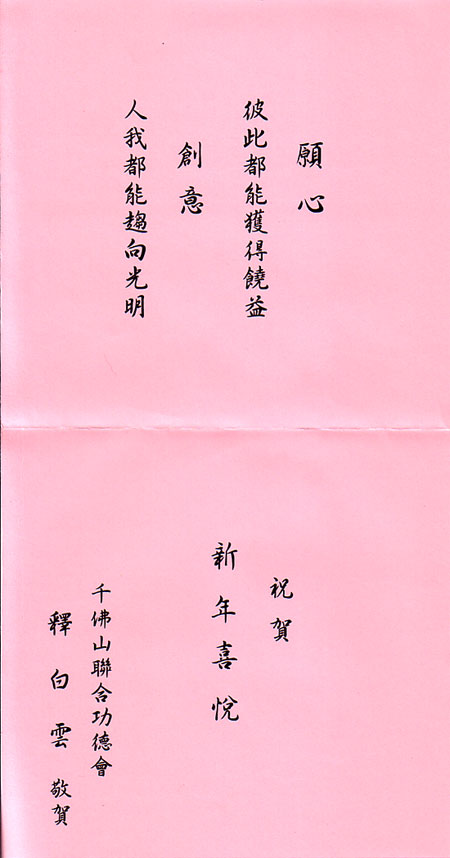 願心
彼此都能獲得饒益
創意
人我都能趨向光明
祝賀
新年喜悅
千佛山聯合功德會
釋白雲敬賀